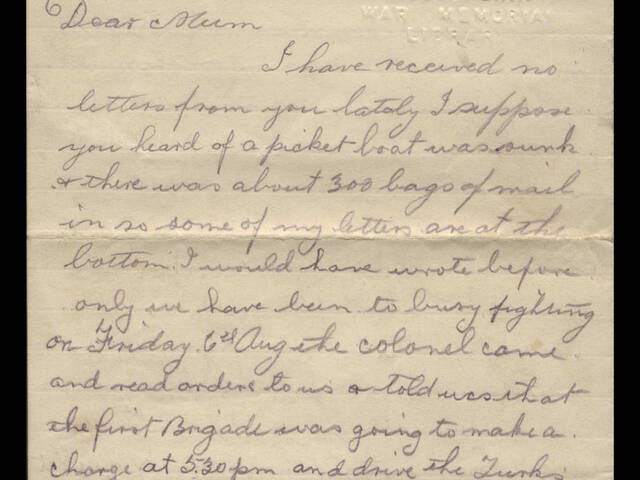 Dear Mum
WAR MEMORIAL
LIBRARY
I have received no
letters from you lately I suppose
you heard of a picket boat was sunk
& there was about 300 bags of mail
in so some of my letters are at the
bottom. I would have wrote before
only we have been to busy fighting
on Friday 6th Aug the colonel came
and read orders to us & told us that
the first Brigade was going to make a
charge at 5.30 pm and drive the Turks